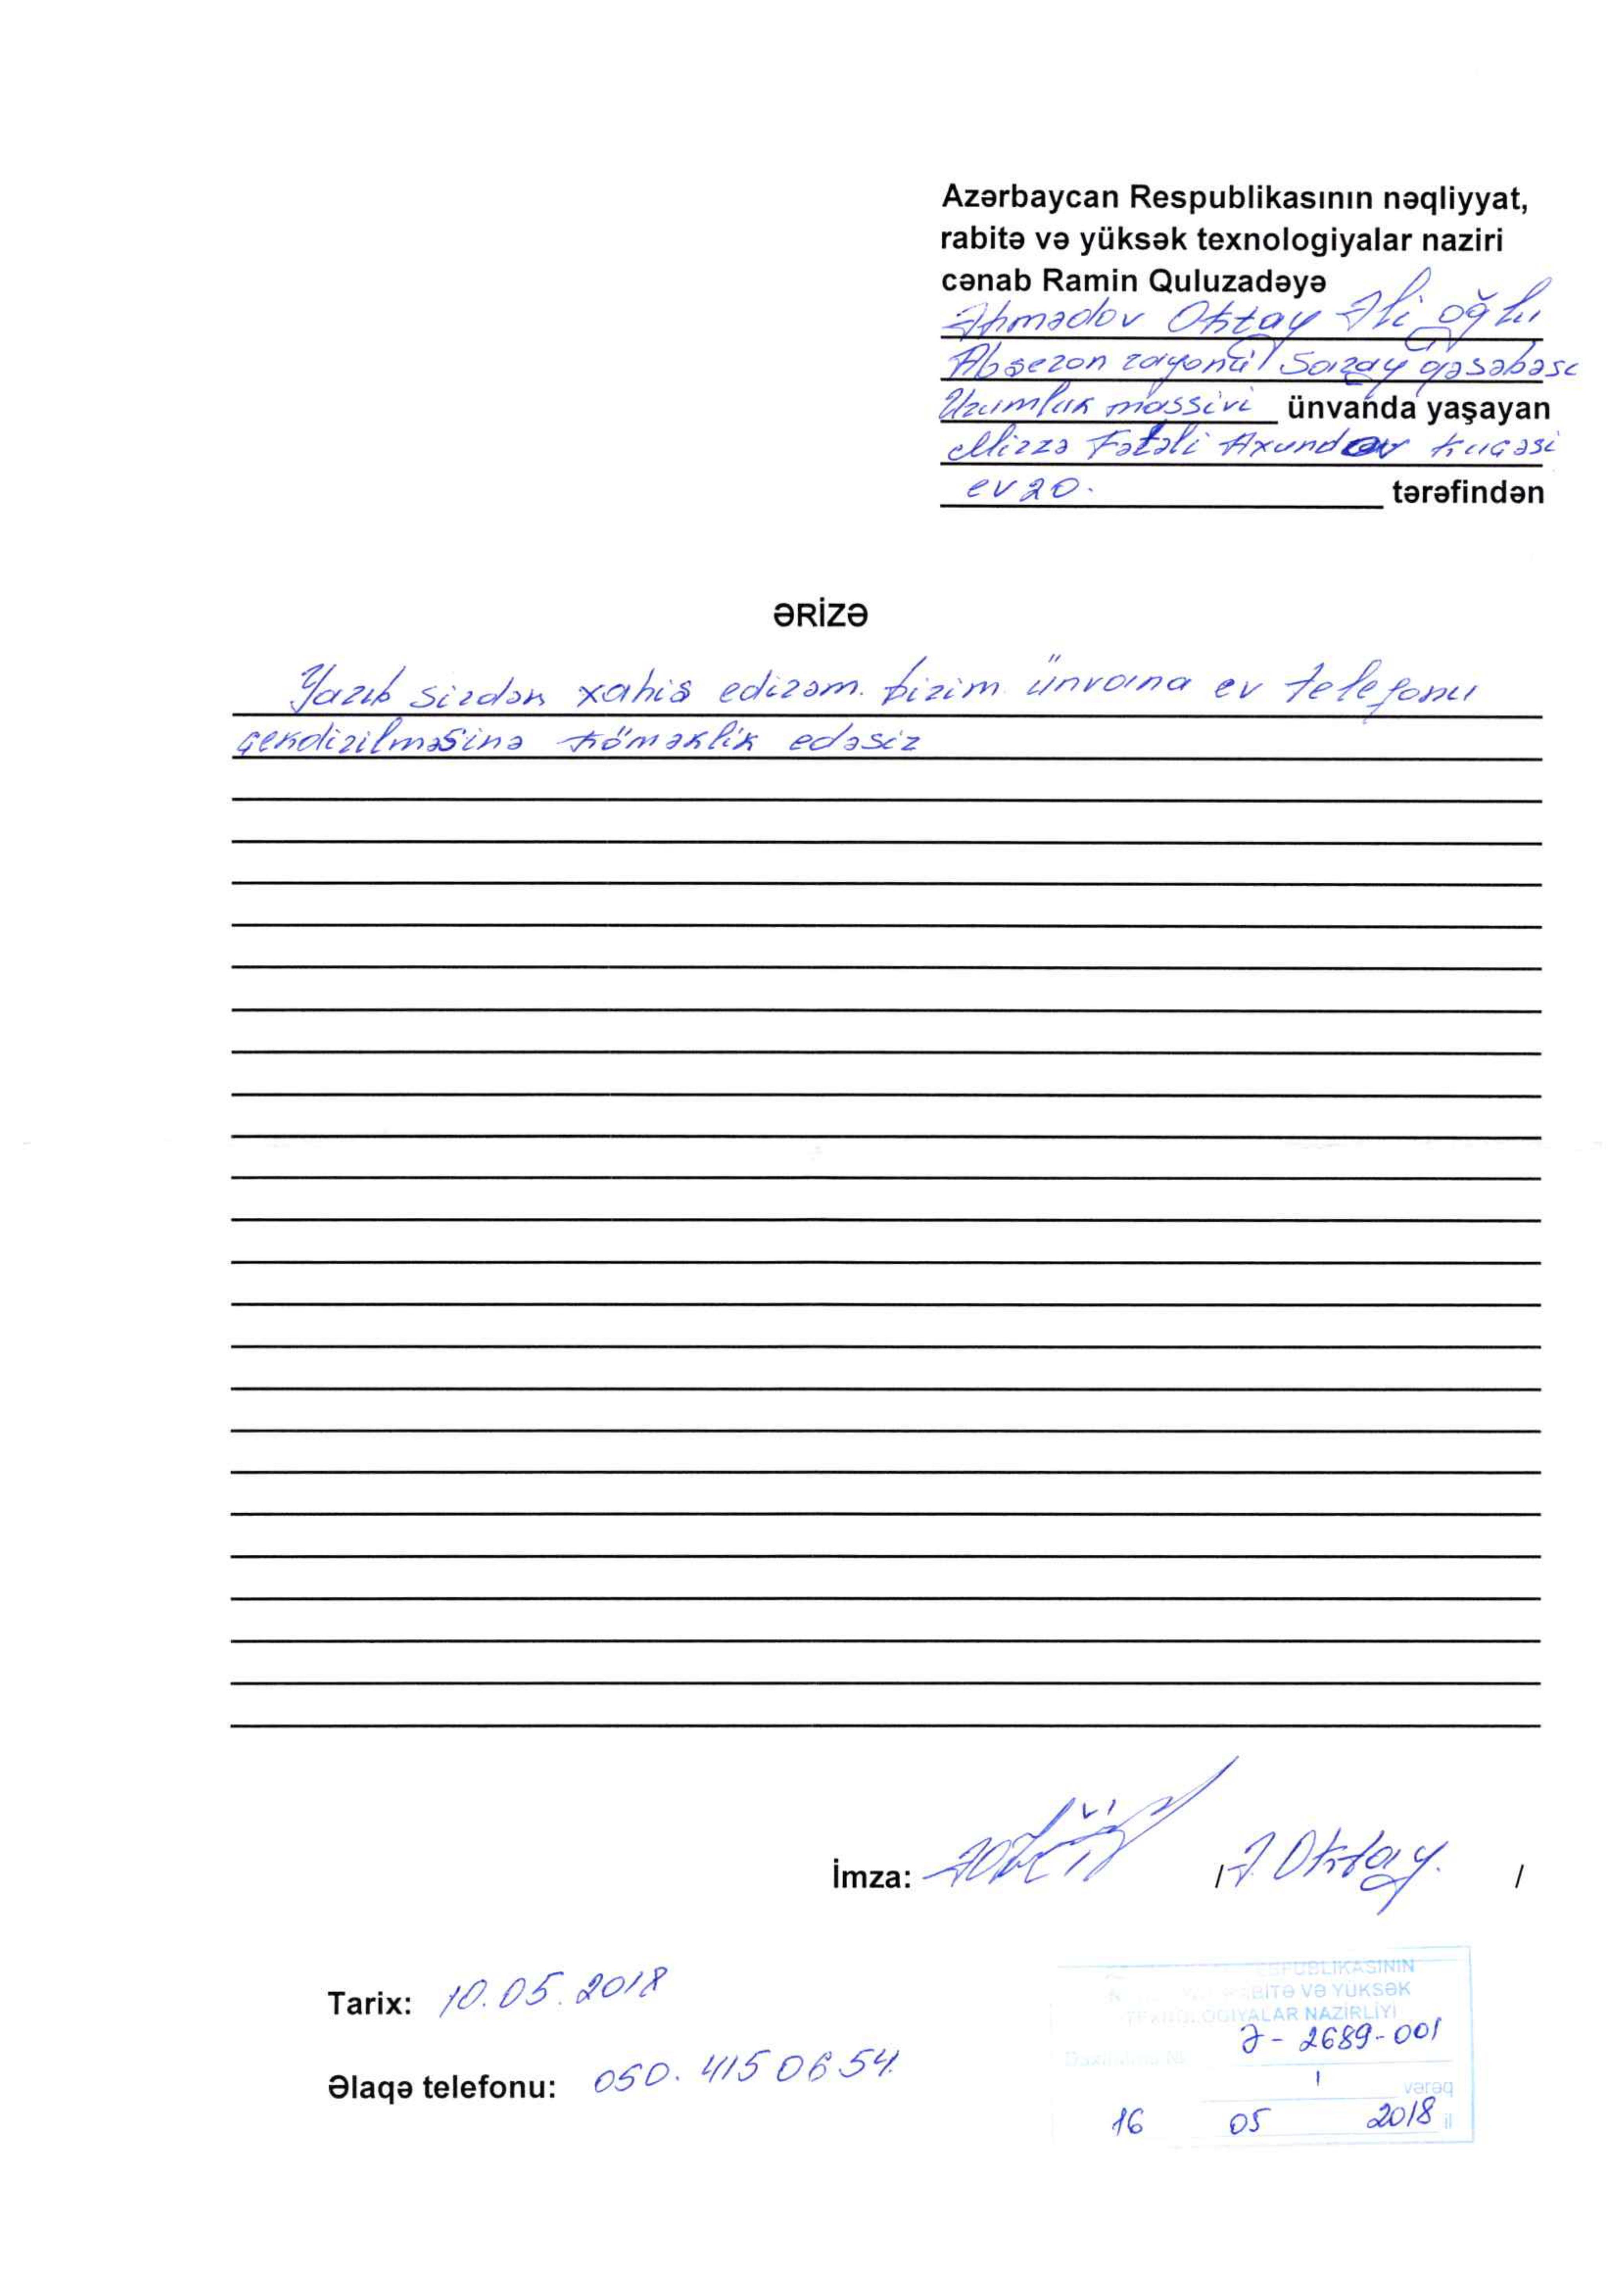 Azərbaycan Respublikasının nəqliyyat,
rabitə və yüksək texnologiyalar naziri
cənab Ramin Quluzadəyə
Əhmədov Oktay Əli oğlu
Abşeron rayonu Saray qəsəbəsi
Üzümlük massivi ünvanda yaşayan
Mirzə Fətəli Axundov küçəsi
ev 20. tərəfindən
ƏRİZƏ
Yazıb sizdən xahiş edirəm. bizim ünvana ev telefonu
çəkdirilməsinə köməklik edəsiz
İmza: / Ə. Oktay. /
Tarix: 10.05.2018
Əlaqə telefonu: 050. 415 06 54.
RESPUBLIKASININ
RABİTƏ VƏ YÜKSƏK
TEXNOLOGIYALAR NAZİRLİYİ
Daxilolma № Ə - 2689-001
1 vərəq
16 05 2018 il